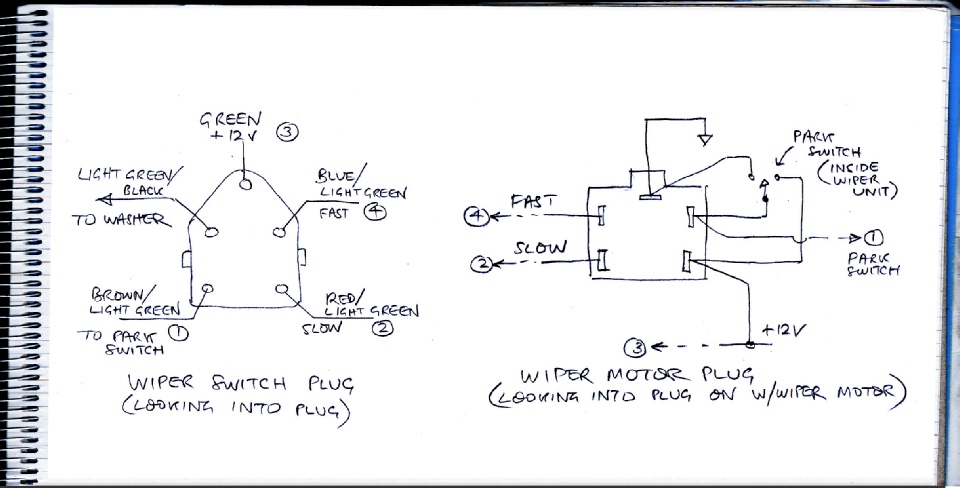 GREEN
+12V ③
LIGHT GREEN/
BLACK
TO WASHER
BLUE/
LIGHT GREEN
FAST ④
BROWN/
LIGHT GREEN
TO PARK ①
SWITCH
RED/
LIGHT GREEN
SLOW ②
WIPER SWITCH PLUG
(LOOKING INTO PLUG)
PARK
SWITCH
(INSIDE
WIPER
UNIT)
④ FAST
② SLOW
①
PARK
SWITCH
+12V
③
WIPER MOTOR PLUG
(LOOKING INTO PLUG ON W/WIPER MOTOR)